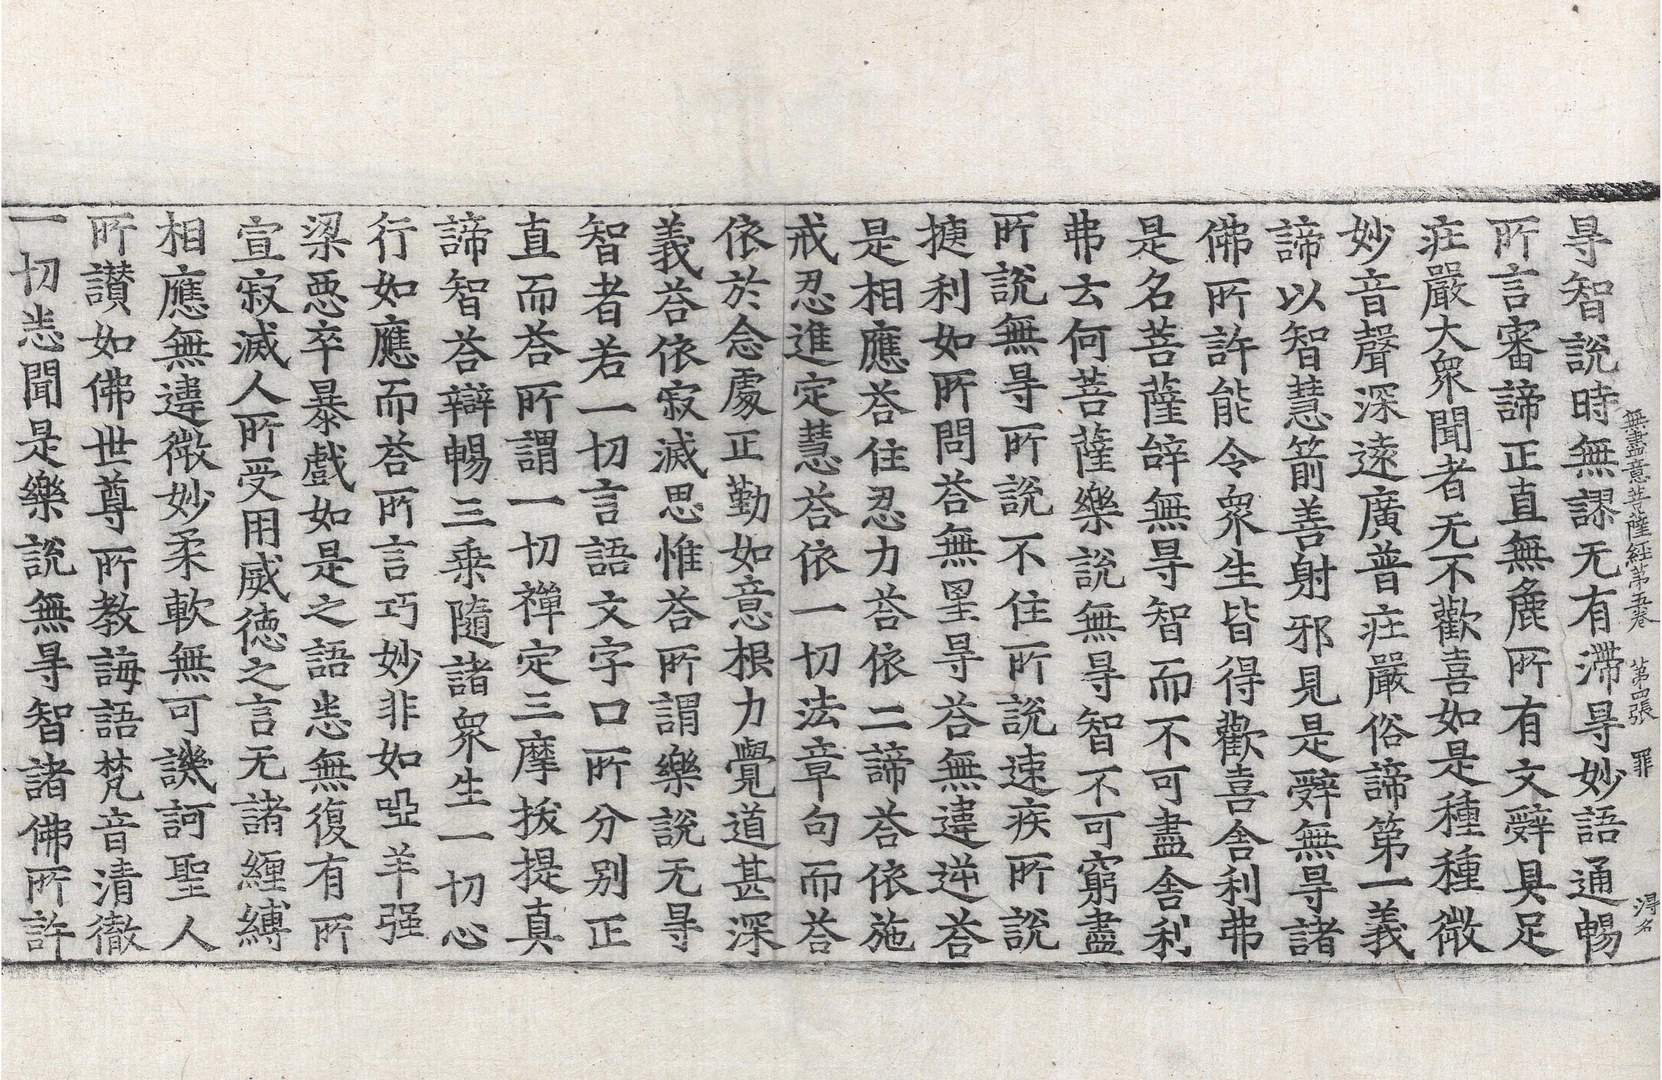 無盡意菩薩經第五卷 第四張 罪 得名
㝵智說時無謬无有滯㝵妙語通暢
所言審諦正直無麁所有文辭具足
莊嚴大眾聞者无不歡喜如是種種微
妙音聲深遠廣普莊嚴俗諦第一義
諦以智慧箭善射邪見是辭無㝵諸
佛所許能令眾生皆得歡喜舍利弗
是名菩薩辝無㝵智而不可盡舍利
弗云何菩薩樂說無㝵智不可窮盡
所說無㝵所說不住所說速疾所說
捷利如所問荅無罣㝵荅無違逆荅
是相應荅住忍力荅依二諦荅依施
戒忍進定慧荅依一切法章句而荅
依於念處正勤如意根力覺道甚深
義荅依寂滅思惟荅所謂樂說无㝵
智者若一切言語文字口所分別正
直而荅所謂一切禪定三摩拔提真
諦智荅辯暢三乘隨諸眾生一切心
行如應而荅所言巧妙非如啞羊强
梁惡卒暴戲如是之語悉無復有所
宣寂滅人所受用威德之言无諸纏縛
相應無違微妙柔軟無可譏訶聖人
所讃如佛世尊所教誨語梵音清徹
一切悉聞是樂說無㝵智諸佛所許